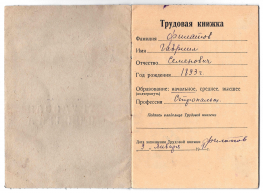 Трудовая книжка
Фамилия Филатов
Имя Гавриил
Отчество Семенович
Год рождения 1893 г.
Образование: начальное, среднее, высшее
(подчеркнуть)
Профессия
Подпись владельца Трудовой книжки
Дата заполнения Трудовой книжки
января